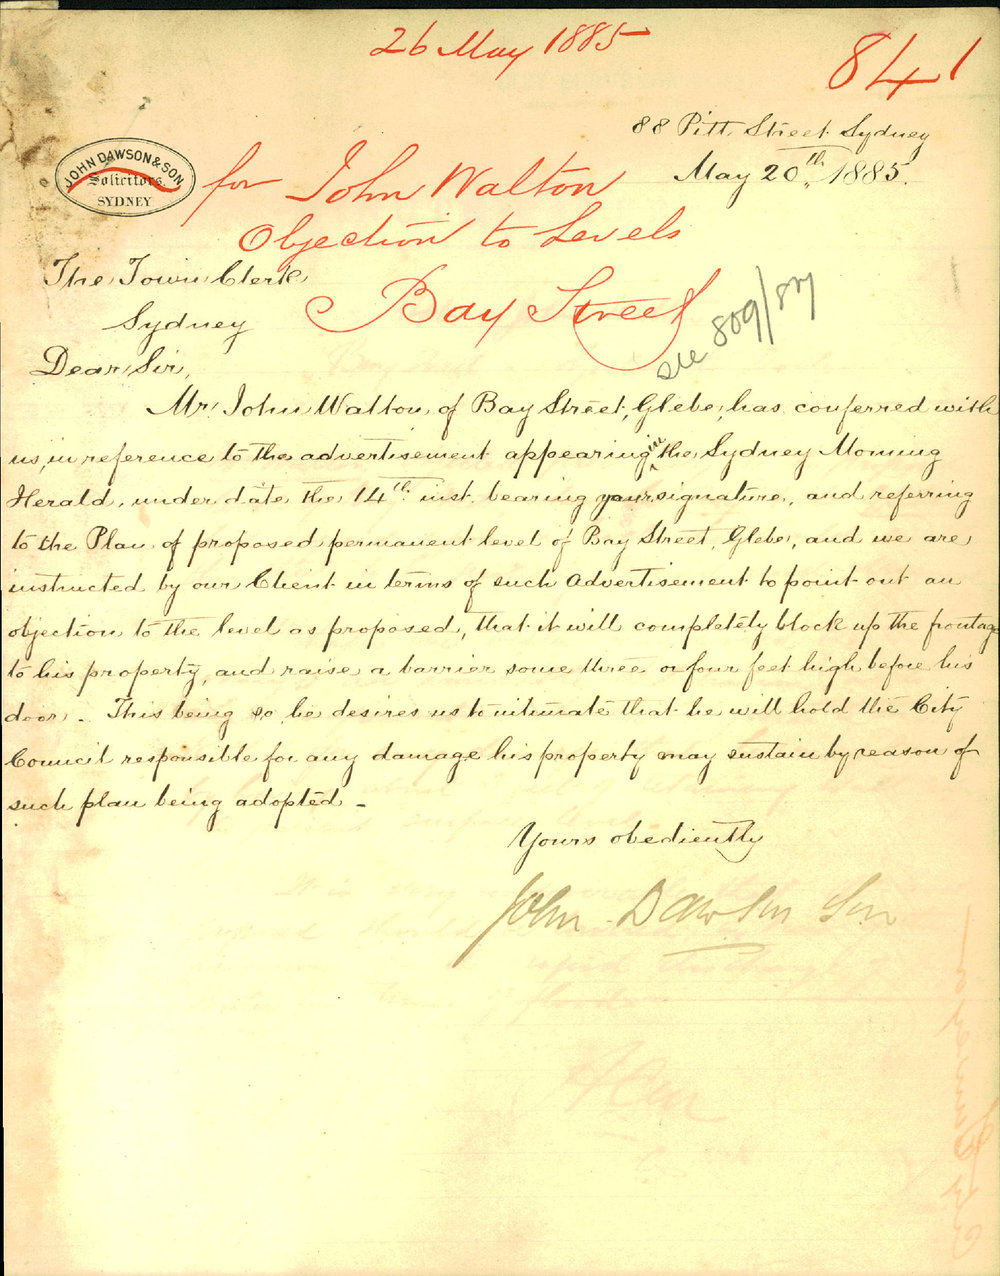 26 May 1885
841
88 Pitt Street Sydney
May 20th 1885.
JOHN DAWSON & SON
Solicitors.
SYDNEY
for John Walton
Objection to Levels
Bay Street
see 809/87
The Town Clerk
Sydney
Dear Sir,
Mr John Walton, of Bay Street, Glebe, has conferred with
us, in reference to the advertisement appearing in the Sydney Morning
Herald, under date the 14th inst. bearing your signature, and referring
to the Plan of proposed permanent level of Bay Street, Glebe, and we are
instructed by our Client in terms of such Advertisement to point out an
objection to the level as proposed, that it will completely block up the frontage
to his property, and raise a barrier some three or four feet high before his
door. This being so, he desires us to intimate that he will hold the City
Council responsible for any damage his property may sustain by reason of
such plan being adopted –
Yours obediently
John Dawson Son